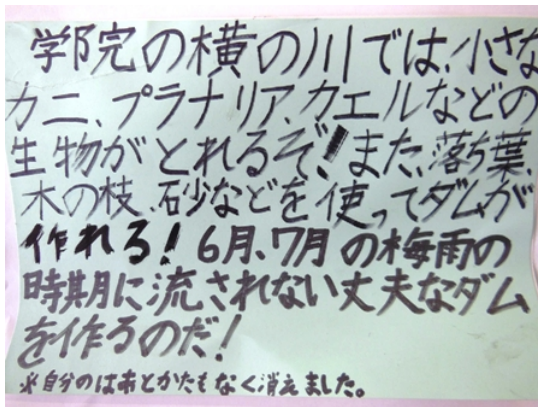 学院の横の川では、小さな
カニ、プラナリア、カエルなどの
生物がとれるぞ!また、落ち葉、
木の枝、砂などを使ってダムが
作れる!6月、7月の梅雨の
時期に流されない丈夫なダム
を作るのだ!
※自分のはあとかたもなく消えました。